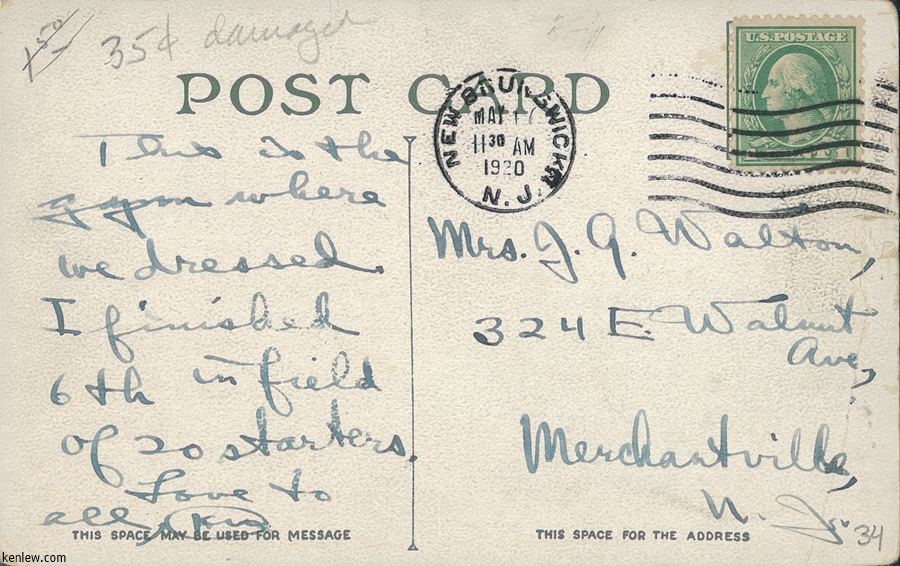 1 50
35¢ damaged
POST CARD
NEW BRUNSWICK
MAY 17
11 30 AM
1920
N. J.
U.S. POSTAGE
This is the
gym where
we dressed.
I finished
6th in field
of 20 starters.
Love to
all
THIS SPACE MAY BE USED FOR MESSAGE
Mrs. J. G. Walton,
324 E. Walnut
Ave,
Merchantville,
N. J.
34
THIS SPACE FOR THE ADDRESS
kenlew.com